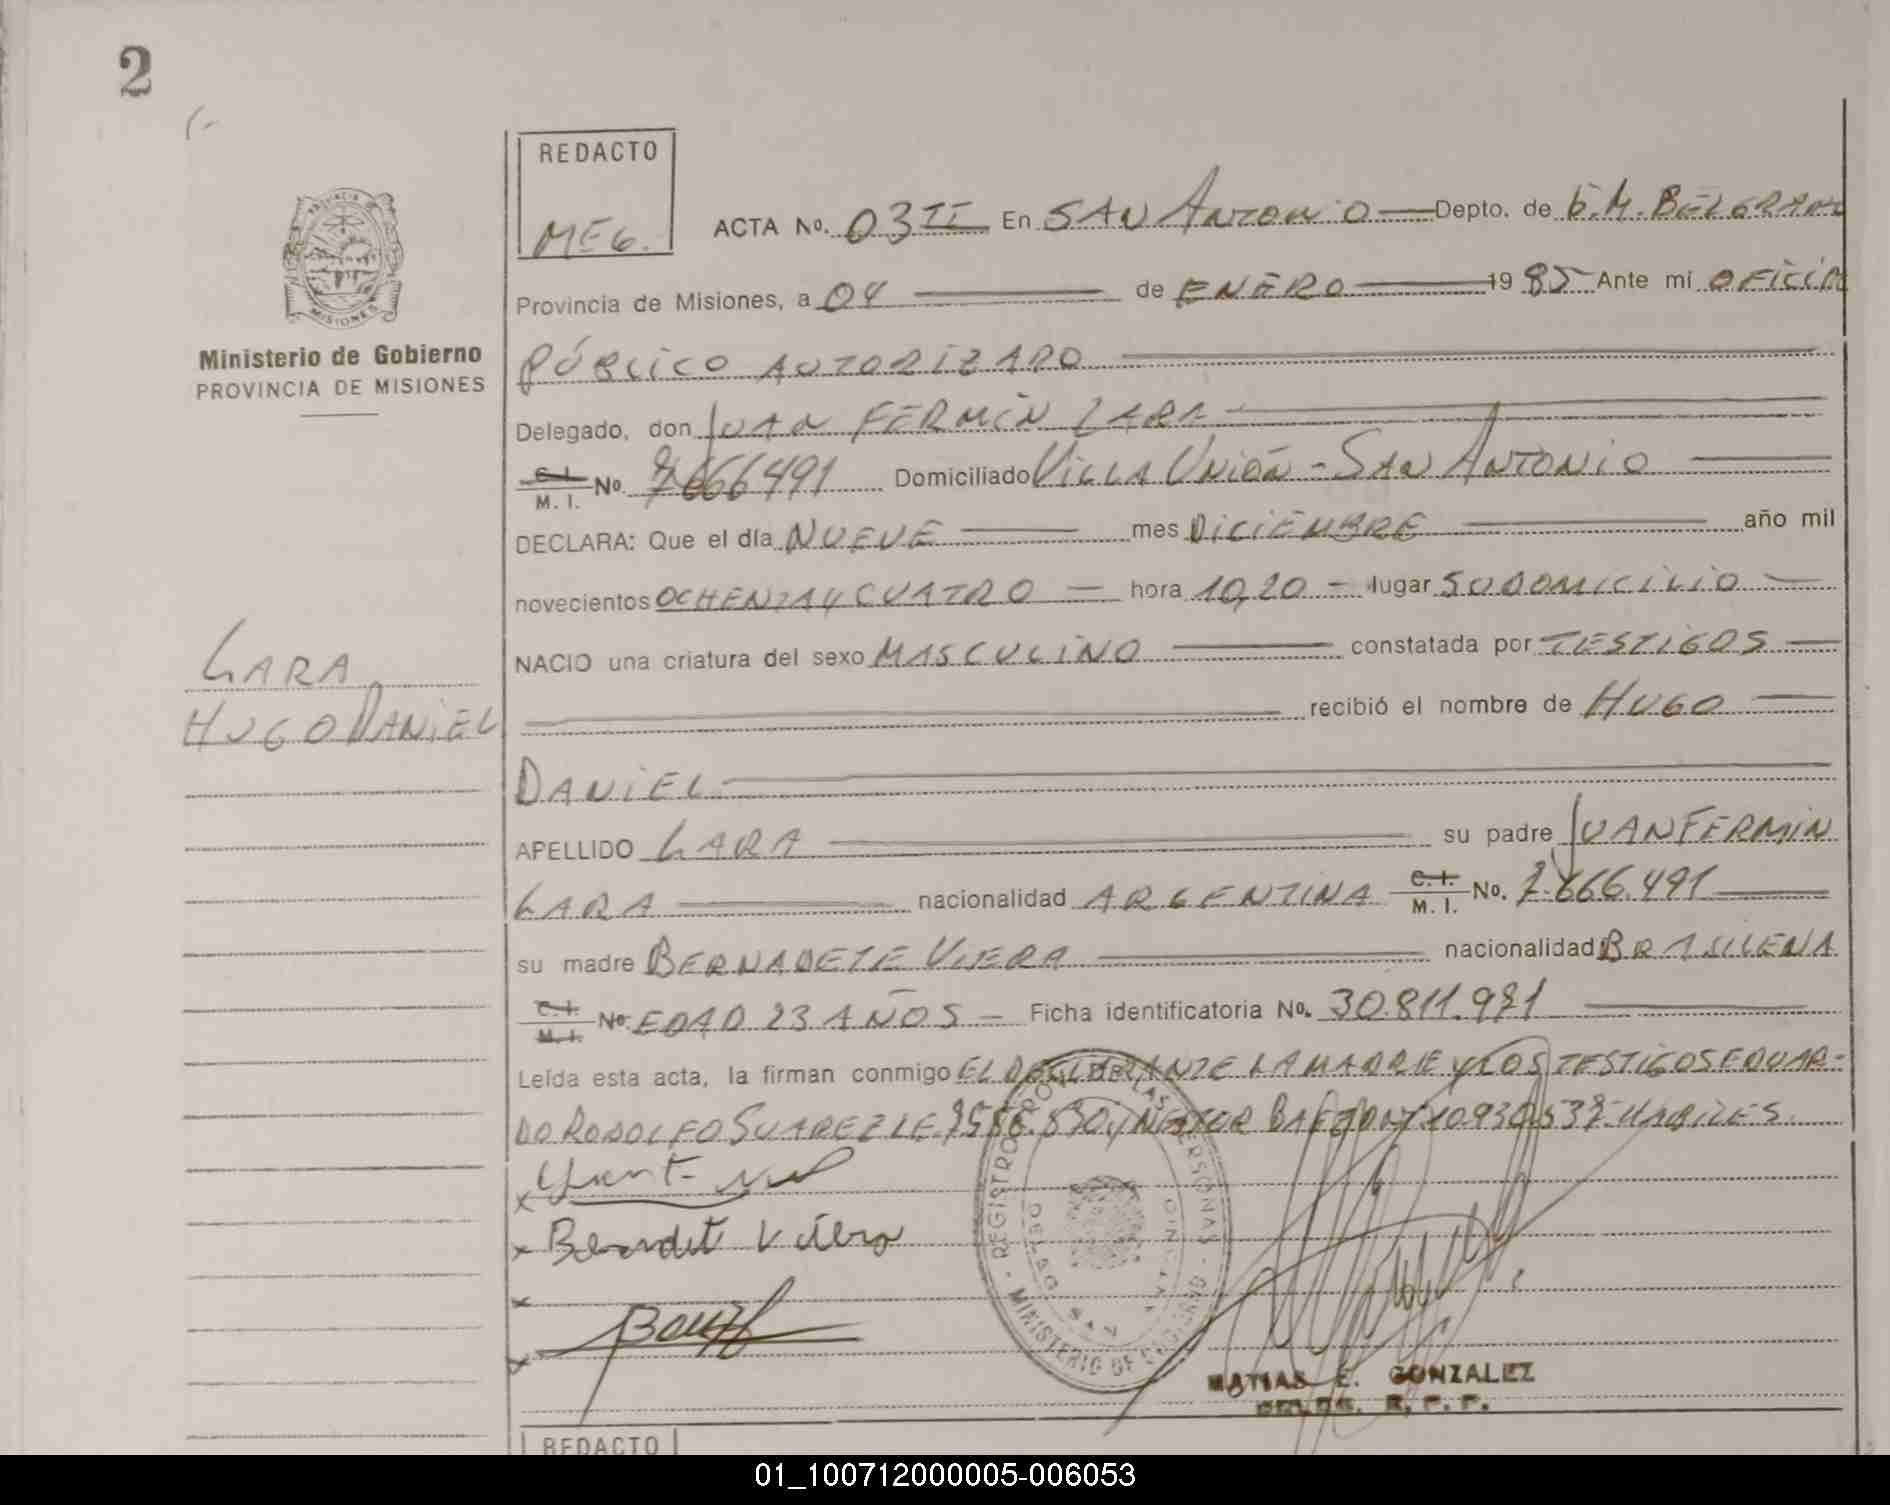 2
REDACTO
MEG.
ACTA No. 03 TI En SAN ANTONIO Depto. de G.M. BELGRANO
Provincia de Misiones, a 04 de ENERO 1985 Ante mi OFICIAL
PÚBLICO AUTORIZADO
PROVINCIA DE
MISIONES
Ministerio de Gobierno
PROVINCIA DE MISIONES
Delegado, don JUAN FERMIN LARA
C. I.
M. I. No. 7.666.491 Domiciliado VILLA UNIÓN - SAN ANTONIO
DECLARA: Que el día NUEVE mes DICIEMBRE año mil
novecientos OCHENTA Y CUATRO hora 10,20 lugar SU DOMICILIO
NACIO una criatura del sexo MASCULINO constatada por TESTIGOS
recibió el nombre de HUGO
DANIEL
LARA
HUGO DANIEL
APELLIDO LARA su padre JUAN FERMIN
LARA nacionalidad ARGENTINA C. I.
M. I. No. 7.666.491
su madre BERNADETE VIERA nacionalidad BRASILENA
C. I.
M. I. No. EDAD 23 AÑOS Ficha identificatoria No. 30.811.971
Leída esta acta, la firman conmigo EL DECLARANTE LA MADRE Y LOS TESTIGOS EDUAR-
DO RODOLFO SUAREZ LE. y NESTOR HABILES.
REGISTRO PERSONAS
MINISTERIO DE
MATIAS E. GONZALEZ
REDACTO
01_100712000005-006053